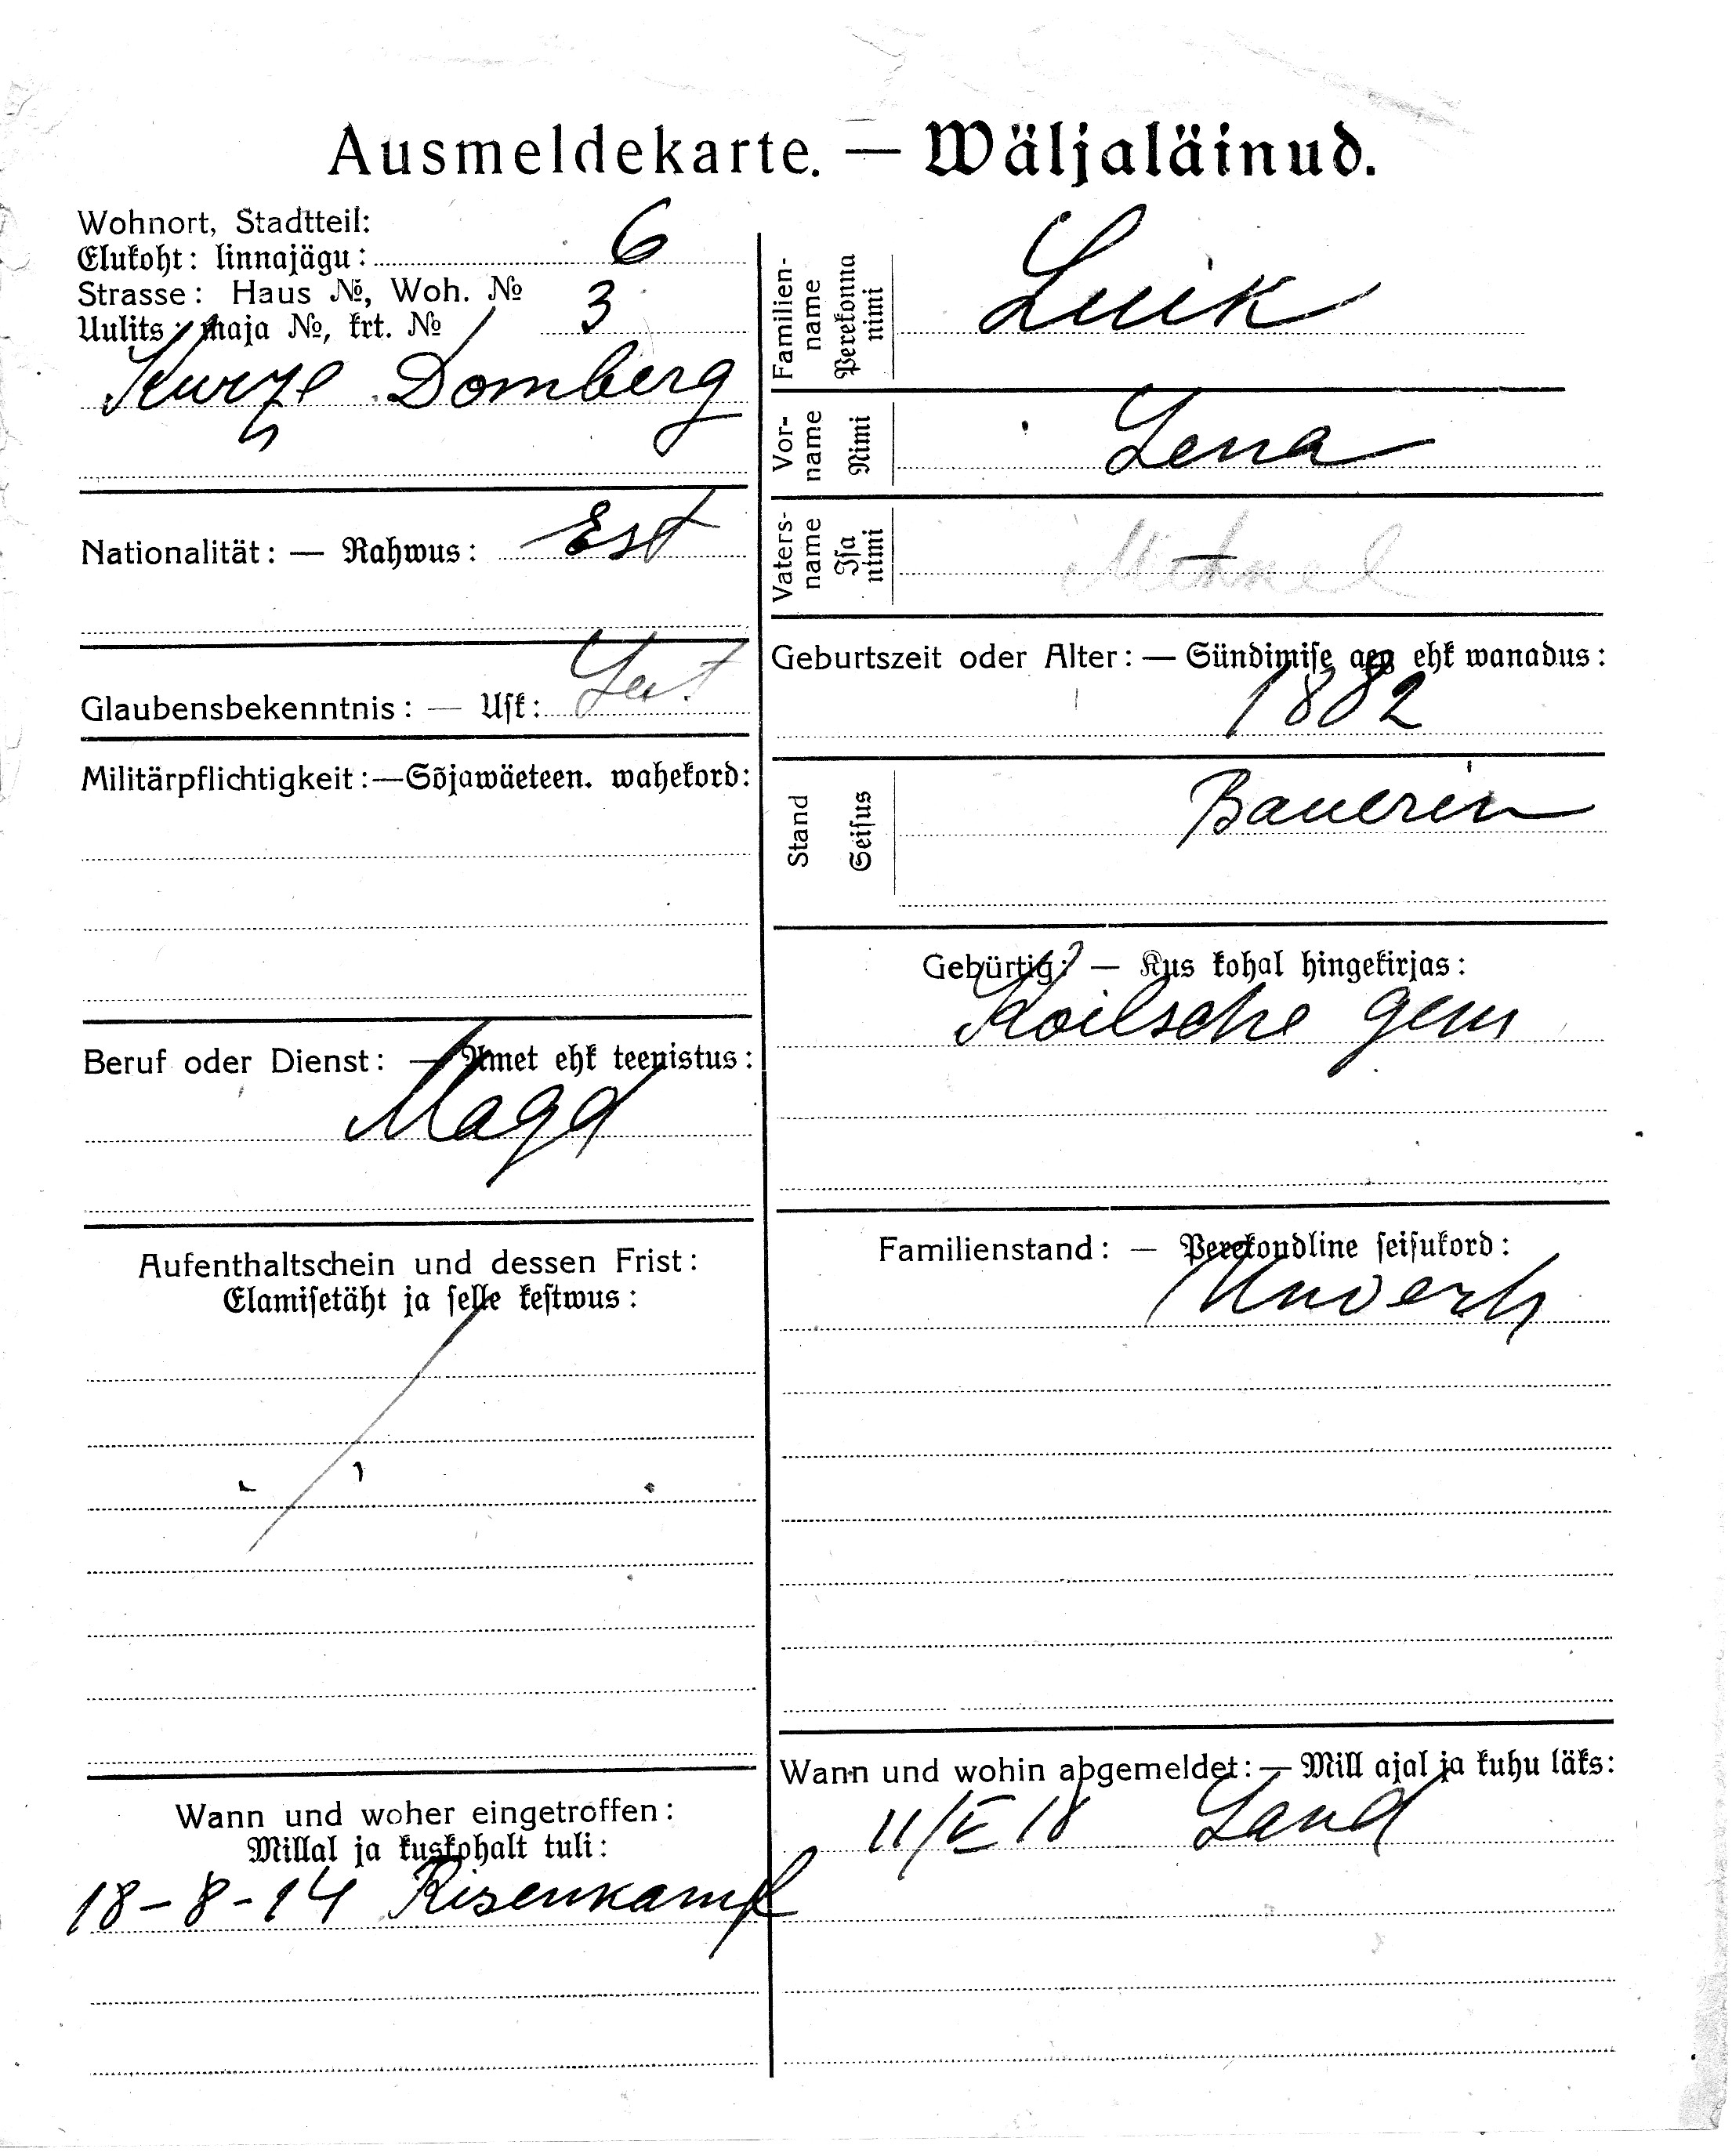 Ausmeldekarte. — Wäljaläinud.
Wohnort, Stadtteil:
Elukoht: linnajägu: 6
Strasse: Haus №, Woh. № 3
Uulits: maja №, krt. №
Kurze Domberg
Nationalität: — Rahwus: Est
Glaubensbekenntnis: — Usk: Lut
Militärpflichtigkeit:—Sõjawäeteen. wahekord:
Beruf oder Dienst: — Amet ehk teenistus:
Magd
Aufenthaltschein und dessen Frist:
Elamisetäht ja selle kestwus:
Wann und woher eingetroffen:
Millal ja kuskohalt tuli:
18-8-14 Risenkampf
Familien-
name
Perekonna
nimi
Luik
Vor-
name
Nimi
Lena
Vaters-
name
Isa
nimi
Mihkel
Geburtszeit oder Alter: — Sündimise aeg ehk wanadus:
1882
Stand
Seisus
Bauerin
Gebürtig: — Kus kohal hingekirjas:
Koilsche gem
Familienstand: — Perekondline seisukord:
Unverh
Wann und wohin abgemeldet: — Mill ajal ja kuhu läks:
11/V 18 Land